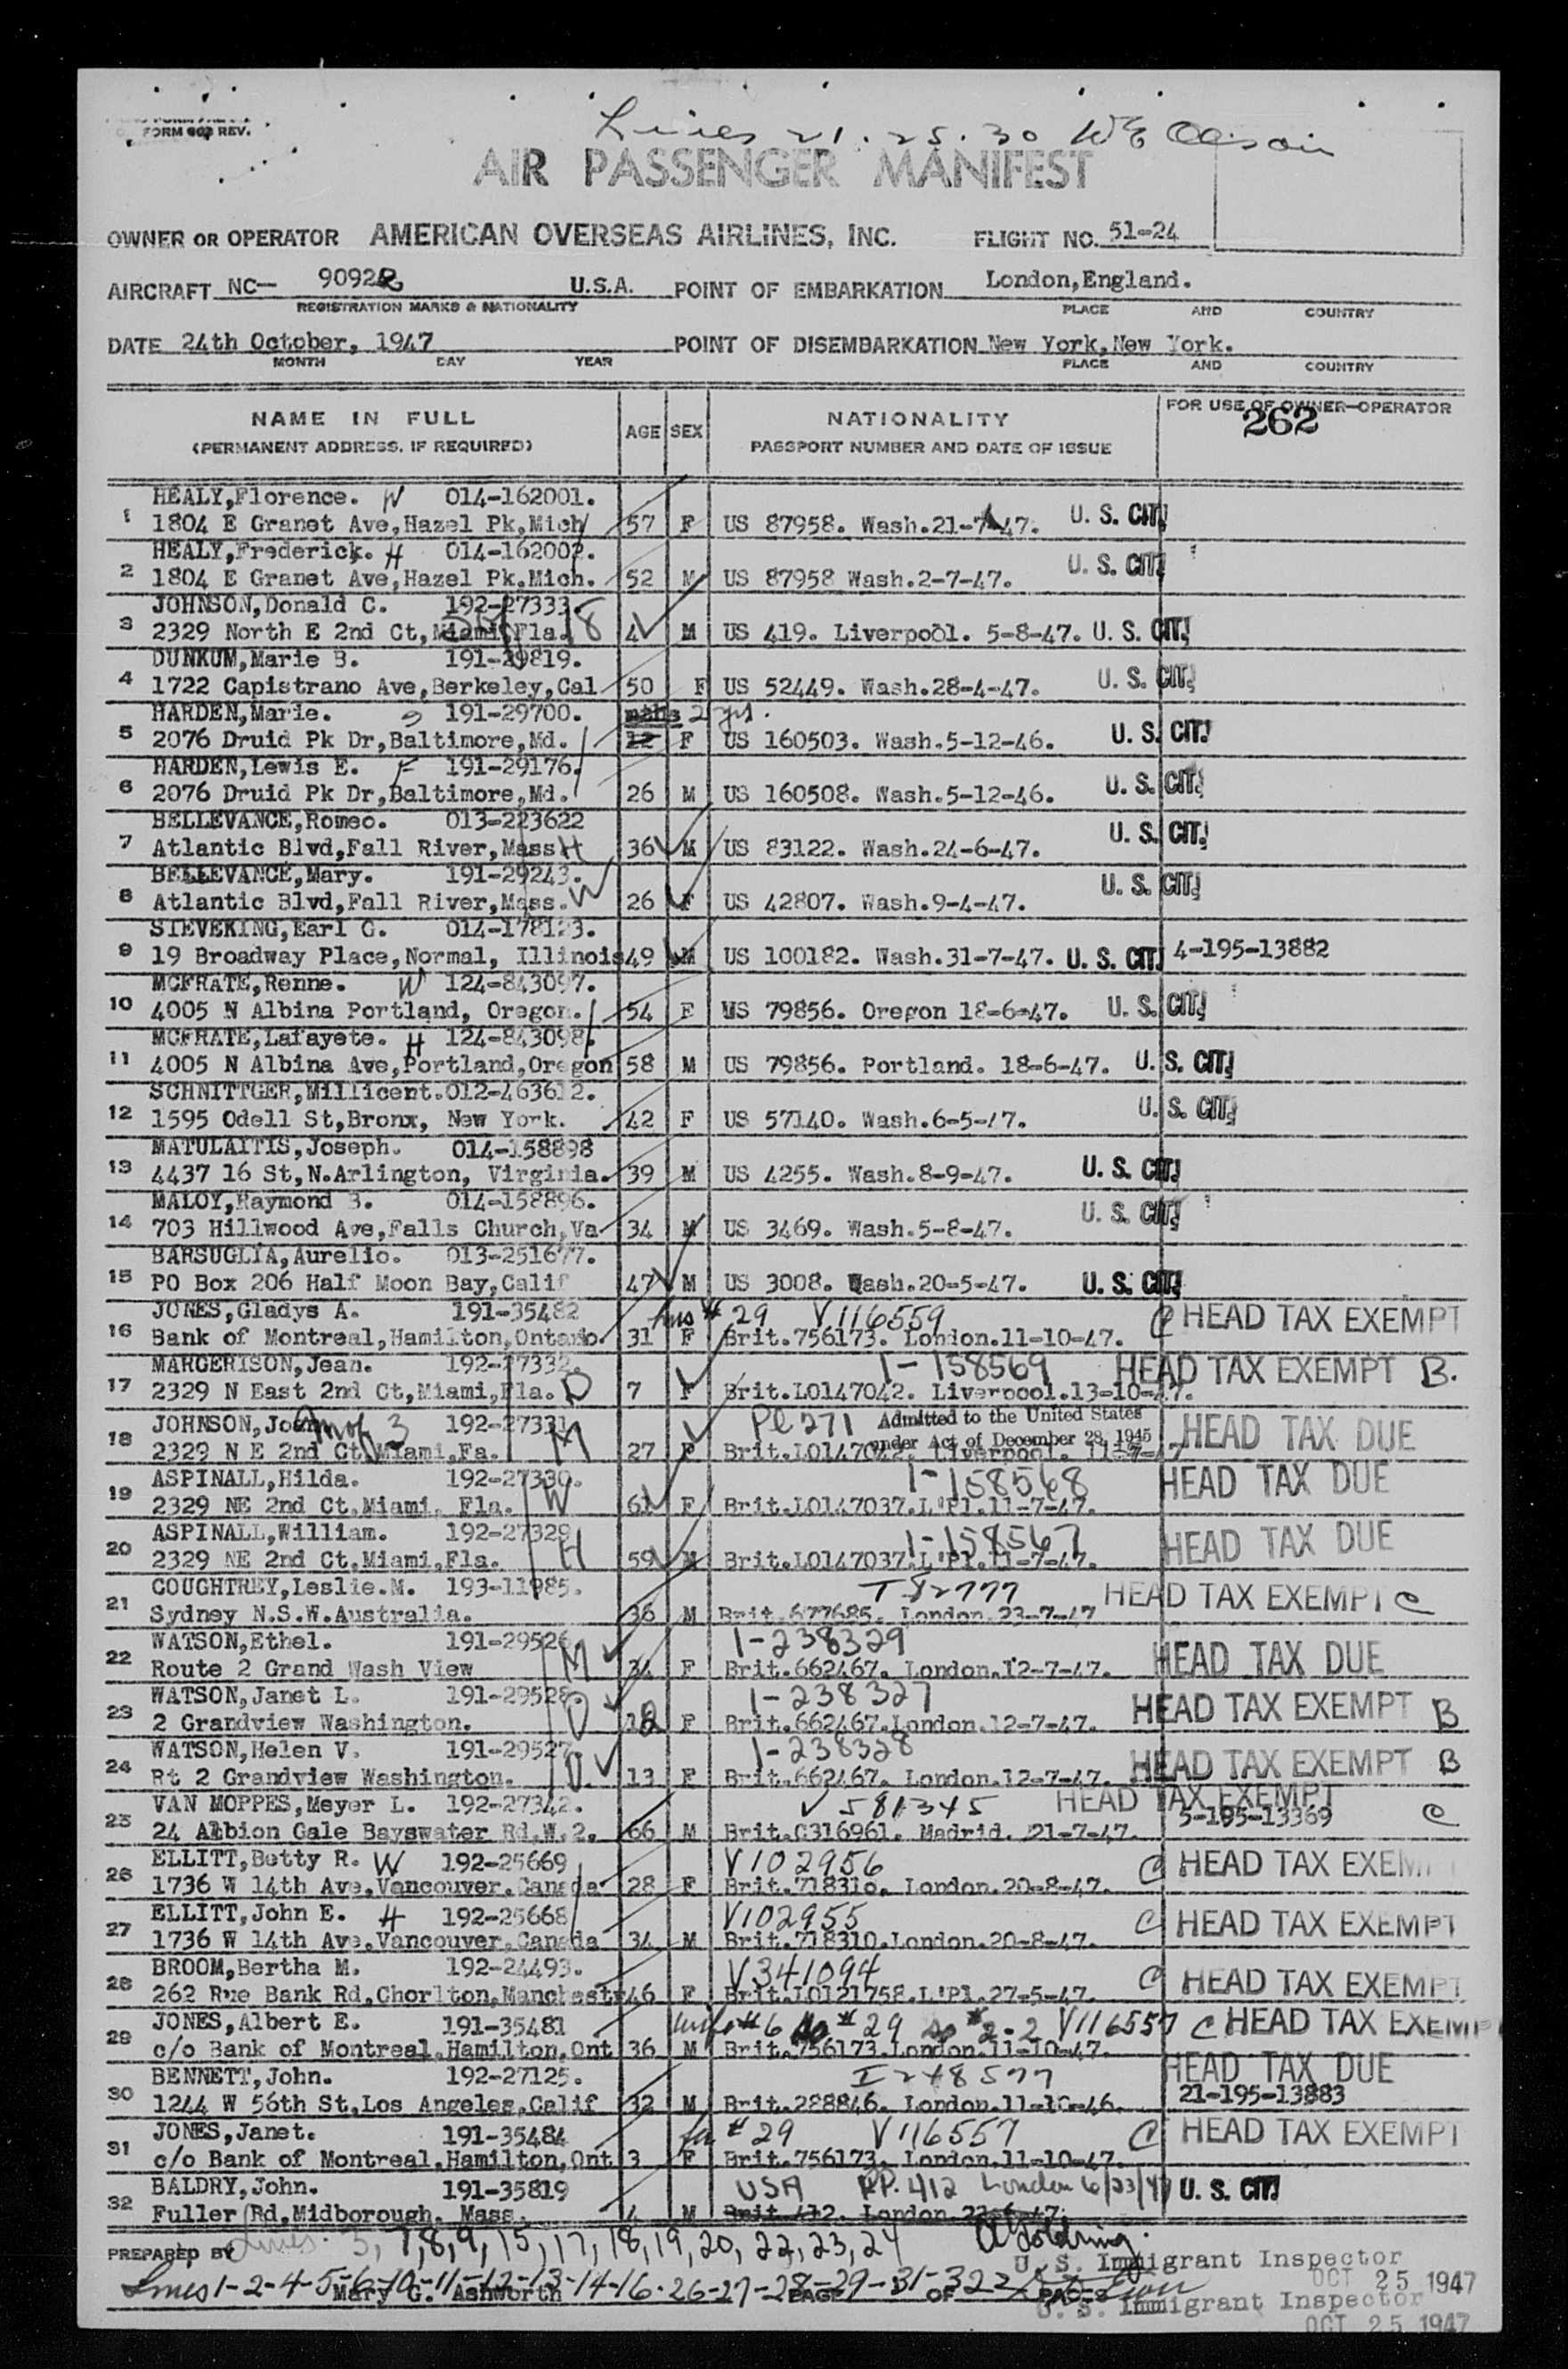 FORM 903 REV.
Lines 21. 25. 30 W E
AIR PASSENGER MANIFEST
OWNER OR OPERATOR AMERICAN OVERSEAS AIRLINES, INC. FLIGHT NO. 51-24
AIRCRAFT NC- 9092 U.S.A. POINT OF EMBARKATION London,England.
REGISTRATION MARKS & NATIONALITY PLACE AND COUNTRY
DATE 24th October, 1947 POINT OF DISEMBARKATION New York,New York.
MONTH DAY YEAR PLACE AND COUNTRY
NAME IN FULL AGE SEX NATIONALITY FOR USE OF OWNER-OPERATOR
(PERMANENT ADDRESS, IF REQUIRED) PASSPORT NUMBER AND DATE OF ISSUE 262
HEALY,Florence. W 014-162001.
1 1804 E Granet Ave,Hazel Pk,Mich 57 F US 87958. Wash.21-7-47. U. S. CIT.
HEALY,Frederick. H 014-162002.
2 1804 E Granet Ave,Hazel Pk.Mich. 52 M US 87958 Wash.2-7-47. U. S. CIT.
JOHNSON,Donald C. 192-27333.
3 2329 North E 2nd Ct,Miami,Fla. 18 4 M US 419. Liverpool. 5-8-47. U. S. CIT.
DUNKUM,Marie B. 191-29819.
4 1722 Capistrano Ave,Berkeley,Cal 50 F US 52449. Wash.28-4-47. U. S. CIT.
HARDEN,Marie. 191-29700. mths 2 yrs.
5 2076 Druid Pk Dr,Baltimore,Md. 12 F US 160503. Wash.5-12-46. U. S. CIT.
HARDEN,Lewis E. F 191-29176.
6 2076 Druid Pk Dr,Baltimore,Md. 26 M US 160508. Wash.5-12-46. U. S. CIT.
BELLEVANCE,Romeo. 013-223622
7 Atlantic Blvd,Fall River,Mass H 36 M US 83122. Wash.24-6-47. U. S. CIT.
BELLEVANCE,Mary. 191-29243.
8 Atlantic Blvd,Fall River,Mass. W 26 F US 42807. Wash.9-4-47. U. S. CIT.
SIEVEKING,Earl C. 014-178123.
9 19 Broadway Place,Normal, Illinois 49 M US 100182. Wash.31-7-47. U. S. CIT. 4-195-13882
MCFRATE,Renne. W 124-843097.
10 4005 N Albina Portland, Oregon. 54 F US 79856. Oregon 18-6-47. U. S. CIT.
MCFRATE,Lafayete. H 124-843098.
11 4005 N Albina Ave,Portland,Oregon 58 M US 79856. Portland. 18-6-47. U. S. CIT.
SCHNITTGER,Millicent.012-463612.
12 1595 Odell St,Bronx, New York. 42 F US 57140. Wash.6-5-47. U. S. CIT.
MATULAITIS,Joseph. 014-158898
13 4437 16 St,N.Arlington, Virginia. 39 M US 4255. Wash.8-9-47. U. S. CIT.
MALOY,Raymond B. 014-158896.
14 703 Hillwood Ave,Falls Church,Va 34 M US 3469. Wash.5-8-47. U. S. CIT.
BARSUGLIA,Aurelio. 013-251677.
15 PO Box 206 Half Moon Bay,Calif 47 M US 3008. Wash.20-5-47. U. S. CIT.
JONES,Gladys A. 191-35482 # 29 V116559 C HEAD TAX EXEMPT
16 Bank of Montreal,Hamilton,Ontario. 31 F Brit.756173. London.11-10-47.
MARGERISON,Jean. 192-27332. 1-158569 HEAD TAX EXEMPT B.
17 2329 N East 2nd Ct,Miami,Fla. D 7 F Brit.LO147042. Liverpool.13-10-47.
JOHNSON,Joan 192-27331 Pl 271 Admitted to the United States HEAD TAX DUE
under Act of December 28, 1945
18 2329 N E 2nd Ct Miami,Fa. M 27 F Brit.LO147042. Liverpool. 11-7-47
ASPINALL,Hilda. 192-27330. 1-158568 HEAD TAX DUE
19 2329 NE 2nd Ct.Miami, Fla. W 61 F Brit.LO147037.L'Pl.11-7-47.
ASPINALL,William. 192-27329 1-158567 HEAD TAX DUE
20 2329 NE 2nd Ct.Miami,Fla. H 59 M Brit.LO147037.L'Pl.11-7-47.
COUGHTREY,Leslie.M. 193-11985. T 82777 HEAD TAX EXEMPT C
21 Sydney N.S.W.Australia. 36 M Brit.677685. London.23-7-47
WATSON,Ethel. 191-29526 1-238329 HEAD TAX DUE
22 Route 2 Grand Wash View M 34 F Brit.662467. London.12-7-47.
WATSON,Janet L. 191-29528. 1-238327 HEAD TAX EXEMPT B
23 2 Grandview Washington. D 12 F Brit.662467.London.12-7-47.
WATSON,Helen V. 191-29527 1-238328 HEAD TAX EXEMPT B
24 Rt 2 Grandview Washington. D. 13 F Brit.662467. London.12-7-47.
VAN MOPPES,Meyer L. 192-27342. V 581345 HEAD TAX EXEMPT C
25 24 Albion Gale Bayswater Rd.W.2. 66 M Brit.C316961. Madrid. 21-7-47. 5-195-13369
ELLITT,Betty R. W 192-25669 V102956 C HEAD TAX EXEMPT
26 1736 W 14th Ave.Vancouver.Canada 28 F Brit.718310. London.20-8-47.
ELLITT,John E. H 192-25668 V102955 C HEAD TAX EXEMPT
27 1736 W 14th Ave.Vancouver.Canada 34 M Brit.718310.London.20-8-47.
BROOM,Bertha M. 192-24493. V341094 C HEAD TAX EXEMPT
28 262 Rue Bank Rd,Chorlton,Manchestr 46 F Brit.LO121758.L'Pl.27-5-47.
JONES,Albert E. 191-35481 wife #6 # 29 V116557 C HEAD TAX EXEMPT
29 c/o Bank of Montreal.Hamilton.Ont 36 M Brit.756173.London.11-10-47.
BENNETT,John. 192-27125. I 248577 HEAD TAX DUE
30 1244 W 56th St,Los Angeles,Calif 32 M Brit.288846. London.11-10-46. 21-195-13883
JONES,Janet. 191-35484 # 29 V116557 C HEAD TAX EXEMPT
31 c/o Bank of Montreal.Hamilton.Ont 3 F Brit.756173. London.11-10-47.
BALDRY,John. 191-35819 USA PP. 412 London 6/23/47 U. S. CIT.
32 Fuller Rd,Midborough. Mass. 4 M Brit 412. London.23-6-47.
PREPARED BY Lines. 3, 7,8,9,15,17,18,19,20,22,23,24
U. S. Immigrant Inspector
OCT 25 1947
Lines 1-2-4-5-6-10-11-12-13-14-16-26-27-28-29-31-32
Mary G. Ashworth PAGE OF PAGES
U. S. Immigrant Inspector
OCT 25 1947